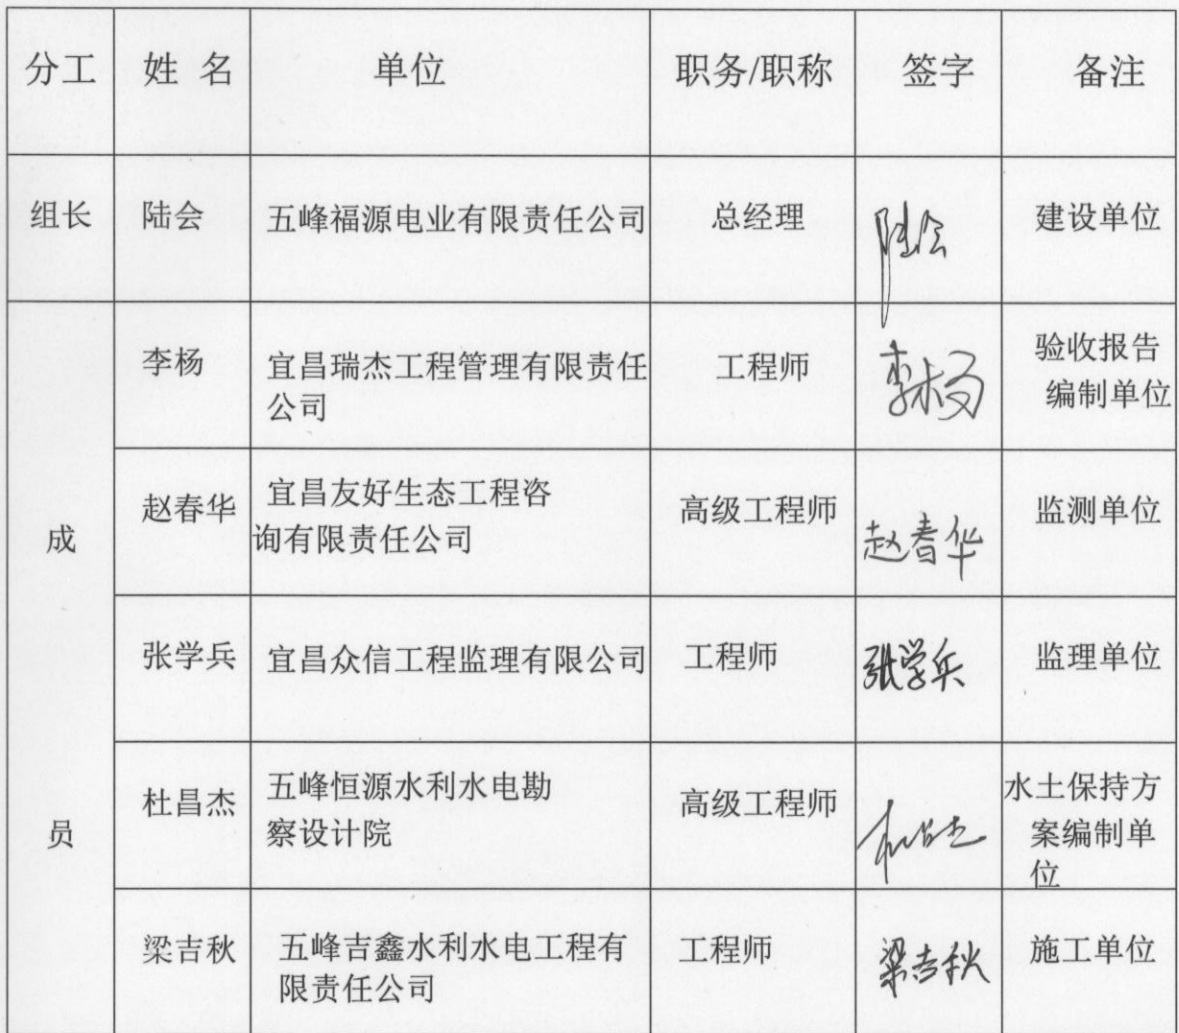 分工 姓 名 单位 职务/职称 签字 备注
组长 陆会 五峰福源电业有限责任公司 总经理 陆会 建设单位
李杨 宜昌瑞杰工程管理有限责任
公司 工程师 李杨 验收报告
编制单位
成
赵春华 宜昌友好生态工程咨
询有限责任公司 高级工程师 赵春华 监测单位
张学兵 宜昌众信工程监理有限公司 工程师 张学兵 监理单位
员
杜昌杰 五峰恒源水利水电勘
察设计院 高级工程师 杜昌杰 水土保持方
案编制单
位
梁吉秋 五峰吉鑫水利水电工程有
限责任公司 工程师 梁吉秋 施工单位